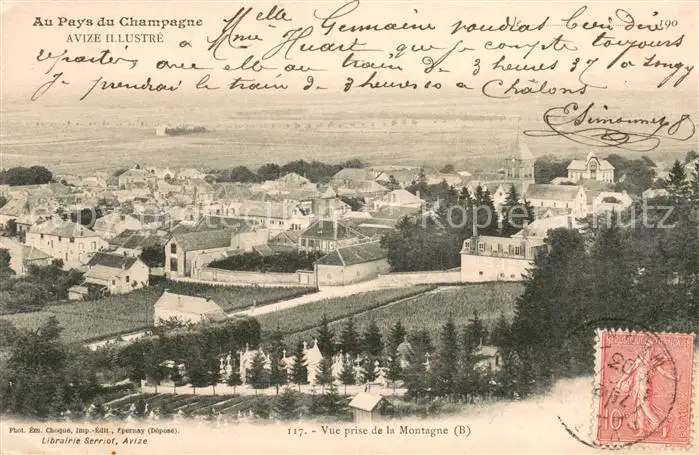 Au Pays du Champagne
AVIZE ILLUSTRÉ
190
Melle Germaine voudrait bien dire
à Mme Huart que je compte toujours
repartir avec elle au train de 3 heures 37 à Longy
Je prendrai le train de 3 heures 20 à Châlons
E Simonnet
117. - Vue prise de la Montagne (B)
Phot. Ém. Choque, Imp.-Édit., Epernay (Déposé).
Librairie Serriot, Avize
REPUBLIQUE FRANÇAISE
10